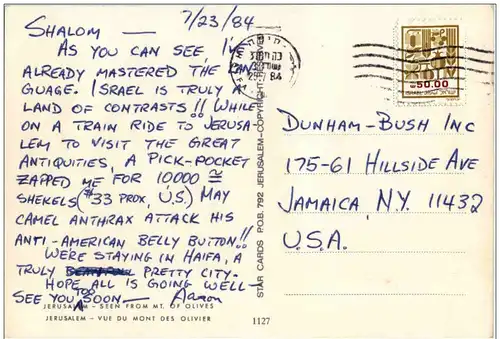 7/23/84
SHALOM —
AS YOU CAN SEE, I'VE
ALREADY MASTERED THE LAN-
GUAGE. ISRAEL IS TRULY A
LAND OF CONTRASTS!! WHILE
ON A TRAIN RIDE TO JERUSA-
LEM TO VISIT THE GREAT
ANTIQUITIES, A PICK-POCKET
ZAPPED ME FOR 10,000 ≅
SHEKELS ($33 PROX, U.S.) MAY
CAMEL ANTHRAX ATTACK HIS
ANTI-AMERICAN BELLY BUTTON!!
WE'RE STAYING IN HAIFA, A
TRULY BEAUTIFUL PRETTY CITY.
HOPE ALL IS GOING WELL—
SEE YOU TOO SOON— Aaron
JERUSALEM – SEEN FROM MT. OF OLIVES
JERUSALEM – VUE DU MONT DES OLIVIER
1127
STAR CARDS P.O.B. 792 JERUSALEM–COPYRIGHT
84
50.00
DUNHAM-BUSH INC
175-61 HILLSIDE AVE
JAMAICA, N.Y. 11432
U.S.A.